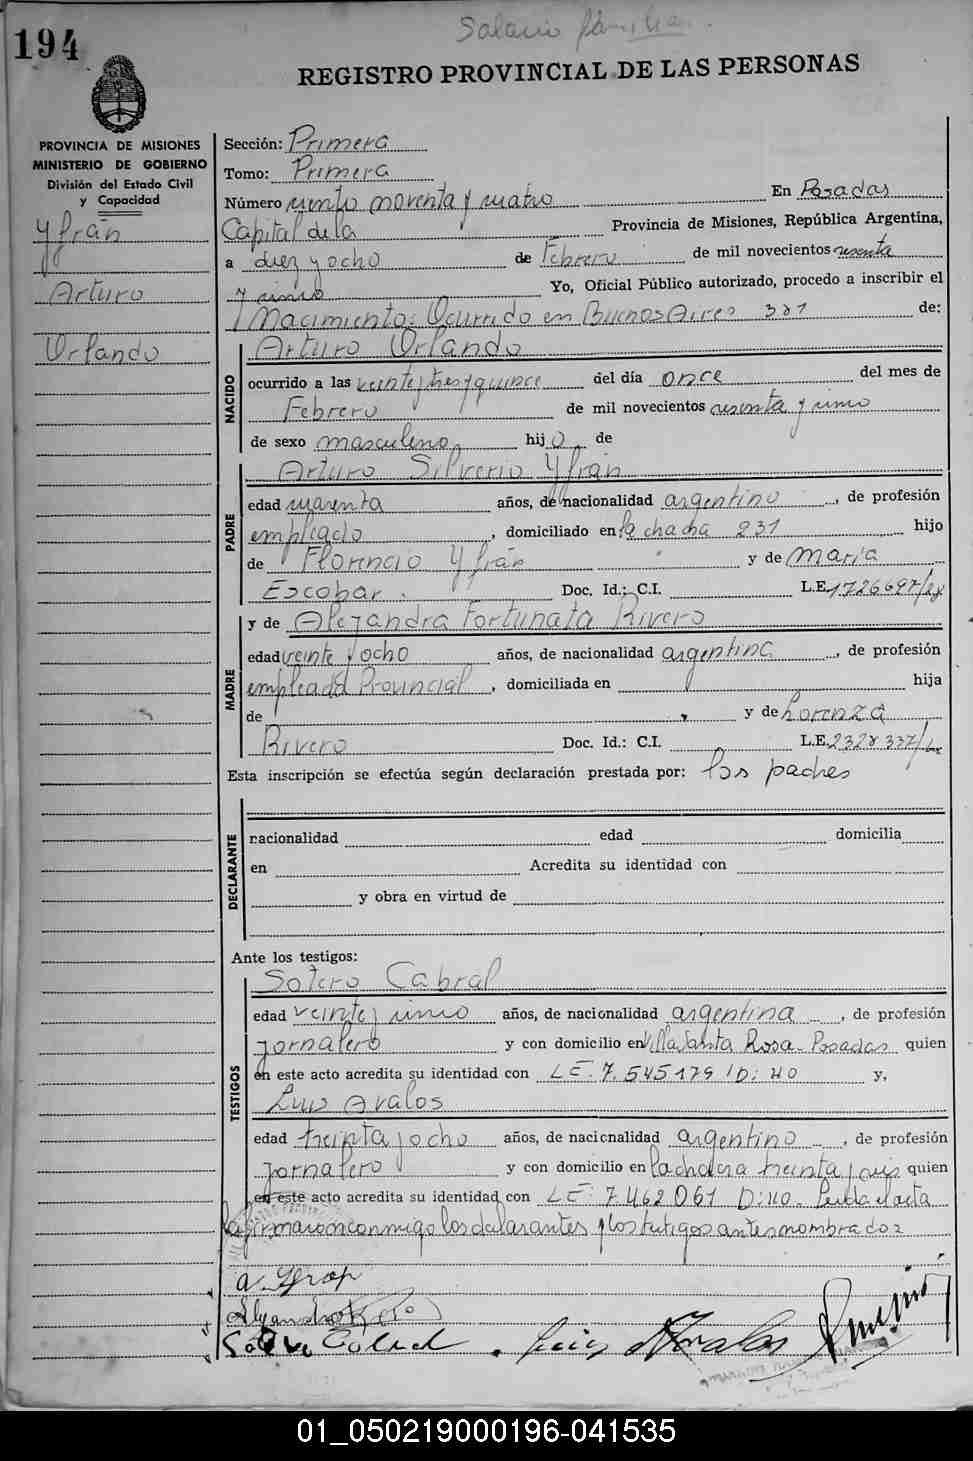 Salario familiar.
194
REGISTRO PROVINCIAL DE LAS PERSONAS
PROVINCIA DE MISIONES
MINISTERIO DE GOBIERNO
División del Estado Civil
y Capacidad
Yfrán
Arturo
Orlando
Sección: Primera
Tomo: Primera
Número ciento noventa y cuatro En Posadas
Capital de la Provincia de Misiones, República Argentina,
a diez y ocho de Febrero de mil novecientos sesenta
y uno Yo, Oficial Público autorizado, procedo a inscribir el
Nacimiento: Ocurrido en Buenos Aires 381 de:
NACIDO
Arturo Orlando
ocurrido a las veinte y tres y quince del día once del mes de
Febrero de mil novecientos sesenta y uno
de sexo masculino hijo de
PADRE
Arturo Silverio Yfrán
edad cuarenta años, de nacionalidad argentino, de profesión
empleado, domiciliado en la chacra 231 hijo
de Florencio Yfrán y de María
Escobar. Doc. Id.: C.I. L.E. 1726697/28
MADRE
y de Alejandra Fortunata Rivero
edad veinte y ocho años, de nacionalidad argentina, de profesión
empleada Provincial, domiciliada en hija
de y de Lorenza
Rivero Doc. Id.: C.I. L.E. 2328337/
Esta inscripción se efectúa según declaración prestada por: los padres
DECLARANTE
nacionalidad edad domicilia
en Acredita su identidad con
y obra en virtud de
Ante los testigos:
TESTIGOS
Sotero Cabral
edad veinte y uno años, de nacionalidad argentina, de profesión
jornalero y con domicilio en Villa Santa Rosa - Posadas quien
en este acto acredita su identidad con LE. 7.545179 D: 40 y,
Luis Avalos
edad treinta y ocho años, de nacionalidad argentino, de profesión
jornalero y con domicilio en la chacra treinta y seis quien
en este acto acredita su identidad con LE: 7.462.061 D: 40. Leida el acta
la firmaron conmigo los declarantes y los testigos antes nombrados
a. Yfran
Sotero Cabral Luis Avalos
01_050219000196-041535